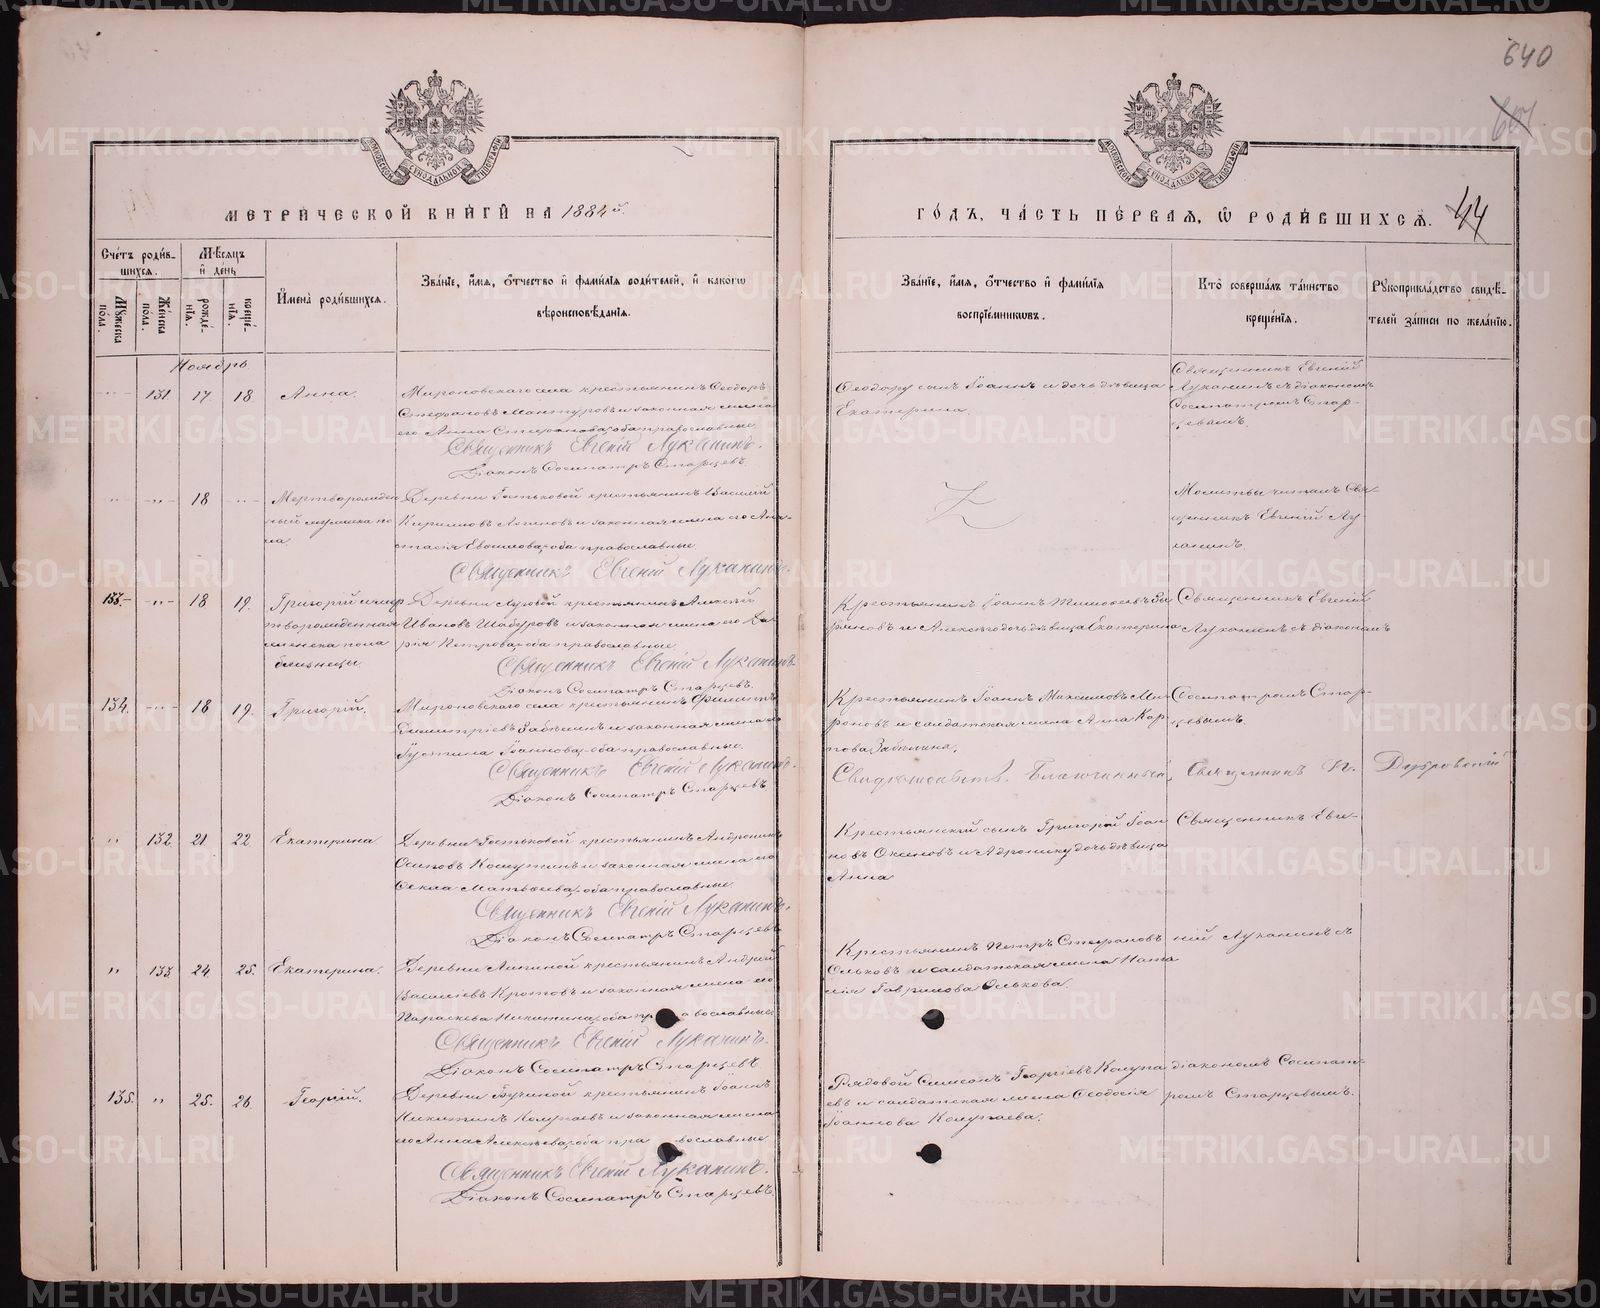 640
МЕТРИЧЕСКОЙ КНИГИ НА 1884 й.
ГОДЪ, ЧАСТЬ ПЕРВАЯ, Ѡ РОДИВШИХСѦ. 44
Счетъ родившихся.
Мужеска пола.
Женска пола.
Мѣсяцъ и день
рожденія.
крещенія.
Имена родившихся.
Званіе, имя, отчество и фамилія родителей, и какого вѣроисповѣданія.
Званіе, имя, отчество и фамилія воспріемниковъ.
Кто совершалъ таинство крещенія.
Рукоприкладство свидѣтелей записи по желанію.
Ноябрь
131 17 18 Анна.
Мироновскаго села крестьянинъ Ѳеодоръ
Стефановъ Мантуровъ и законная жена
его Анна Стефанова, оба православные
Священникъ Евгеній Луканинъ.
Діаконъ Сосипатръ Старцевъ.
Ѳеодору сынъ Іоаннъ и дочь дѣвица
Екатерина.
Священникъ Евгеній
Луканинъ съ діакономъ
Сосипатромъ Старцевымъ.
18 Мертворожденный мужска пола
Деревни Гостьковой крестьянинъ Василій
Кириловъ Логиновъ и законная жена его Анастасія
оба православные
Священникъ Евгеній Луканинъ.
Молитвы читалъ Священникъ
Евгеній Луканинъ
133. 18 19. Григорій и мертворожденная
женска пола
близнецы.
Деревни Луговой крестьянинъ Алексій
Ивановъ Шабуровъ и законная жена его Дарія
Петрова, оба православные.
Священникъ Евгеній Луканинъ.
Діаконъ Сосипатръ Старцевъ.
Крестьянинъ Іоаннъ
и Алексія дочь дѣвица Екатерина
Священникъ Евгеній
Луканинъ съ діакономъ
134. 18 19. Григорій.
Мироновскаго села крестьянинъ Филиппъ
Димитріевъ Забѣлинъ и законная жена его
Іустина Іоаннова, оба православные.
Священникъ Евгеній Луканинъ.
Діаконъ Сосипатръ Старцевъ
Крестьянинъ Іоаннъ Максимовъ Мироновъ
и солдатская жена Анна Карпова
Забѣлина.
Сосипатромъ Старцевымъ.
Свидѣтельств. Благочинный, Священникъ П. Дубровскій
132 21 22 Екатерина
Деревни Гостьковой крестьянинъ Андроникъ
Осиповъ Кокшутинъ и законная жена его
Ѳекла Матѳеева, оба православные.
Священникъ Евгеній Луканинъ.
Діаконъ Сосипатръ Старцевъ
Крестьянскій сынъ Григорій Іоанновъ
и Адронику дочь дѣвица
Анна
Священникъ Евгеній
Луканинъ съ
133 24 25. Екатерина.
Деревни Липиной крестьянинъ Андрей
Василіевъ Кротовъ и законная жена его
Параскева Никитина, оба православные
Священникъ Евгеній Луканинъ.
Діаконъ Сосипатръ Старцевъ
Крестьянинъ Петръ Стефановъ
Ольковъ и солдатская жена Наталія
Гаврилова Олькова.
135. 25. 26 Георгій.
Деревни Бучиной крестьянинъ Іоаннъ
Никитинъ Колупаевъ и законная жена
его Анна Алексѣева, оба православные
Священникъ Евгеній Луканинъ.
Діаконъ Сосипатръ Старцевъ.
Рядовой Симеонъ Георгіевъ Колупаевъ
и солдатская жена Ѳеодосія
Іоаннова Колупаева.
діакономъ Сосипатромъ
Старцевымъ.
METRIKI.GASO-URAL.RU